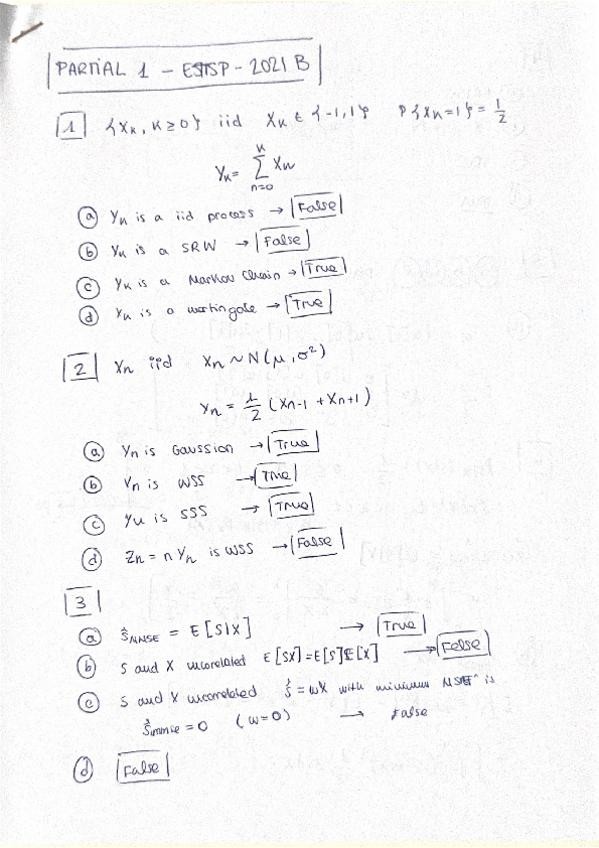 PARTIAL 1 - ESTSP - 2021 B
1 {Xk, K ≥ 0} iid Xk ∈ {-1,1} P{Xk=1} = 1/2
Yk = Σ_{n=0}^{K} Xn
a Yk is a iid process → False
b Yk is a SRW → False
c Yk is a Markov chain → True
d Yk is a martingale → True
2 Xn iid Xn ~ N(μ, σ²)
Yn = 1/2 (Xn-1 + Xn+1)
a Yn is Gaussian → True
b Yn is WSS → True
c Yn is SSS → True
d Zn = n Yn is WSS → False
3
a ŝMMSE = E[S|X] → True
b S and X uncorrelated E[SX]=E[S]E[X] → False
c S and X uncorrelated ŝ = wX with minimum is
ŝlmmse = 0 (w=0) → False
d False